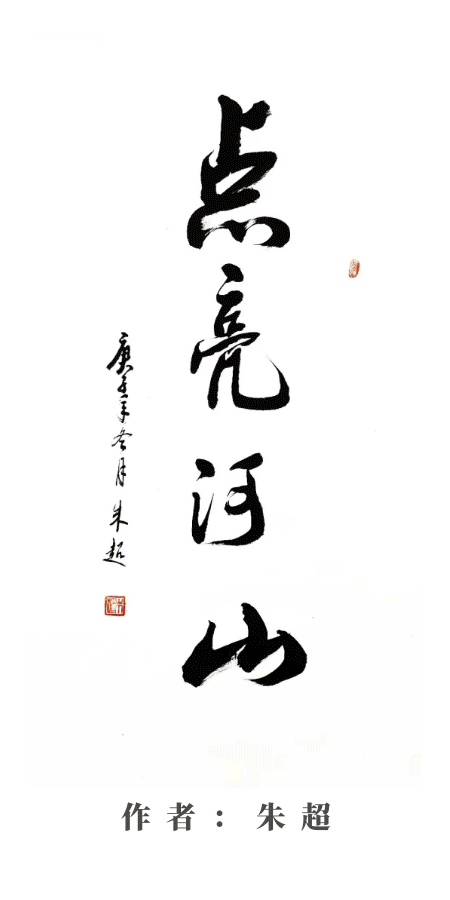 点亮河山
庚子年冬月 朱超
作者：朱超